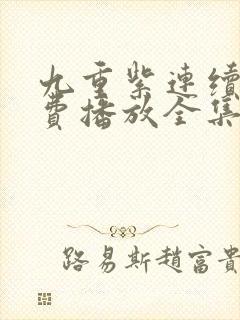 九重紫連續
費播放全集
路易斯趙富貴